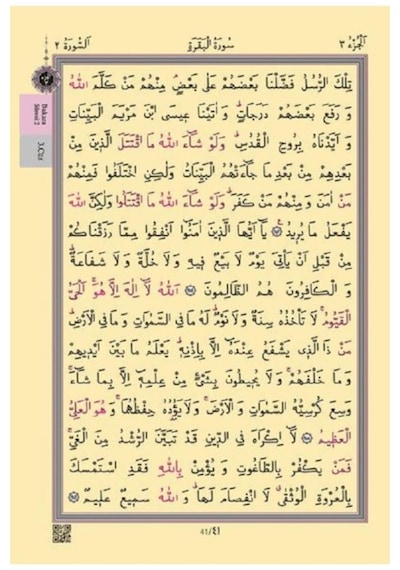 اَلْجُزْءُ ٣
سُورَةُ الْبَقَرَةِ
اَلسُّورَةُ ٢
تِلْكَ الرُّسُلُ فَضَّلْنَا بَعْضَهُمْ عَلٰى بَعْضٍ مِنْهُمْ مَنْ كَلَّمَ اللّٰهُ
وَ رَفَعَ بَعْضَهُمْ دَرَجَاتٍ وَ اٰتَيْنَا عِيسَى ابْنَ مَرْيَمَ الْبَيِّنَاتِ
وَ اَيَّدْنَاهُ بِرُوحِ الْقُدُسِ وَلَوْ شَٓاءَ اللّٰهُ مَا اقْتَتَلَ الَّذِينَ مِنْ
بَعْدِهِمْ مِنْ بَعْدِ مَا جَٓاءَتْهُمُ الْبَيِّنَاتُ وَلٰكِنِ اخْتَلَفُوا فَمِنْهُمْ
مَنْ اٰمَنَ وَ مِنْهُمْ مَنْ كَفَرَ وَلَوْ شَٓاءَ اللّٰهُ مَا اقْتَتَلُوا وَلٰكِنَّ اللّٰهَ
يَفْعَلُ مَا يُرِيدُ ﴿٢٥٣﴾ يَٓا اَيُّهَا الَّذِينَ اٰمَنُٓوا اَنْفِقُوا مِمَّا رَزَقْنَاكُمْ
مِنْ قَبْلِ اَنْ يَأْتِيَ يَوْمٌ لَا بَيْعٌ فِيهِ وَلَا خُلَّةٌ وَلَا شَفَاعَةٌ
وَ الْكَافِرُونَ هُمُ الظَّالِمُونَ ﴿٢٥٤﴾ اَللّٰهُ لَٓا اِلٰهَ اِلَّا هُوَ اَلْحَيُّ
الْقَيُّومُ لَا تَأْخُذُهُ سِنَةٌ وَلَا نَوْمٌ لَهُ مَا فِي السَّمٰوَاتِ وَمَا فِي الْاَرْضِ
مَنْ ذَا الَّذِي يَشْفَعُ عِنْدَهُٓ اِلَّا بِاِذْنِهِ يَعْلَمُ مَا بَيْنَ اَيْدِيهِمْ
وَ مَا خَلْفَهُمْ وَلَا يُحِيطُونَ بِشَيْءٍ مِنْ عِلْمِهِٓ اِلَّا بِمَا شَٓاءَ
وَسِعَ كُرْسِيُّهُ السَّمٰوَاتِ وَ الْاَرْضَ وَلَا يَؤُدُهُ حِفْظُهُمَا وَ هُوَ الْعَلِيُّ
الْعَظِيمُ ﴿٢٥٥﴾ لَٓا اِكْرَاهَ فِي الدِّينِ قَدْ تَبَيَّنَ الرُّشْدُ مِنَ الْغَيِّ
فَمَنْ يَكْفُرْ بِالطَّاغُوتِ وَ يُؤْمِنْ بِاللّٰهِ فَقَدِ اسْتَمْسَكَ
بِالْعُرْوَةِ الْوُثْقٰى لَا انْفِصَامَ لَهَا وَ اللّٰهُ سَمِيعٌ عَلِيمٌ ﴿٢٥٦﴾
41/٤١
Bakara
Sûresi 2
3.Cüz